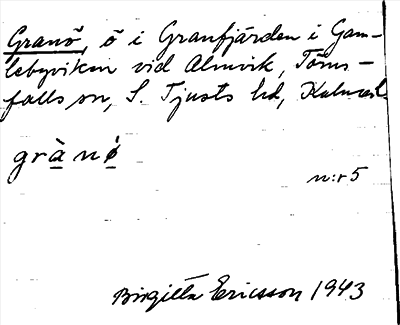 Granö, ö i Granfjärden i Gam-
lebyviken vid Almvik, Törns-
falls sn, S. Tjusts hd, Kalmar l.
grànö́
n:r 5
Birgitta Ericsson 1943